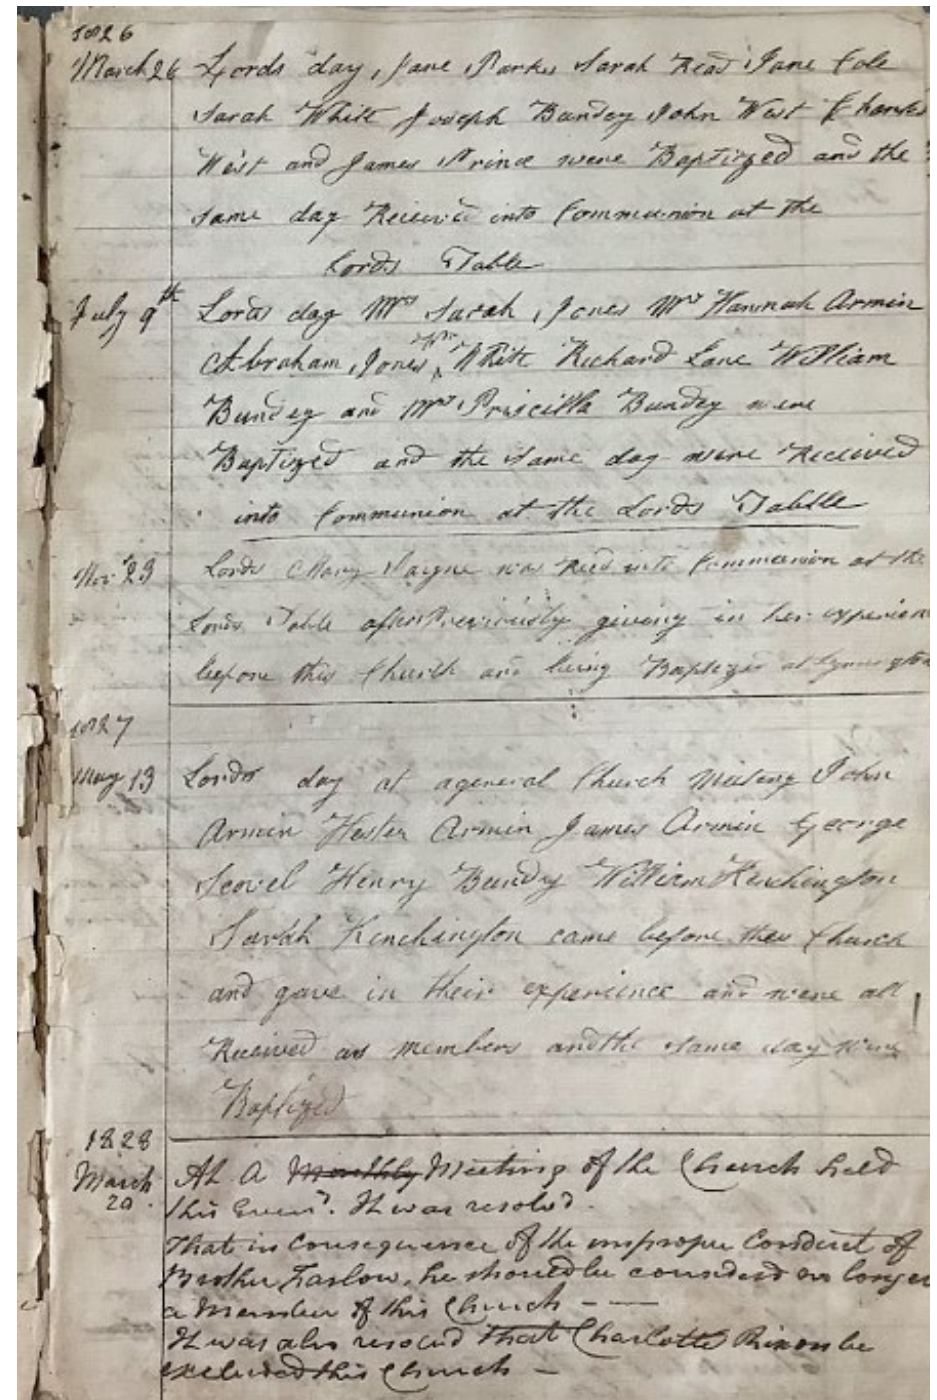 1826
March 26 Lords day, Jane Parks Sarah Read Jane Cole
Sarah White Joseph Bundey John West Charles
West and James Prince were Baptized and the
same day Received into Communion at the
Lords Table
July 9th Lords day Mrs Sarah Jones Mrs Hannah Armin
Abraham Jones Wm White Richard Lane William
Bundey and Mrs Priscilla Bundey were
Baptized and the same day were Received
into Communion at the Lords Tablle
Nov 23 Lords Mary was Recd into Communion at the
Lords Table after Previously giving in her experien
before this Church and being Baptized at Lymington
1827
May 13 Lords day at a general Church Meeting John
Armin Hester Armin James Armin George
Scovel Henry Bundy William Kinchington
Sarah Kinchington came before this Church
and gave in their experience and were all
Received as members and the same day were
Baptized
1828
March 20. At A Monthly Meeting of the Church held
this Eveng. It was resolved.
That in consequence of the improper Conduct of
Brother Farlow, he should be considerd no longer
a Member of this Church - —
It was also resolved that Charlotte be
excluded this Church —